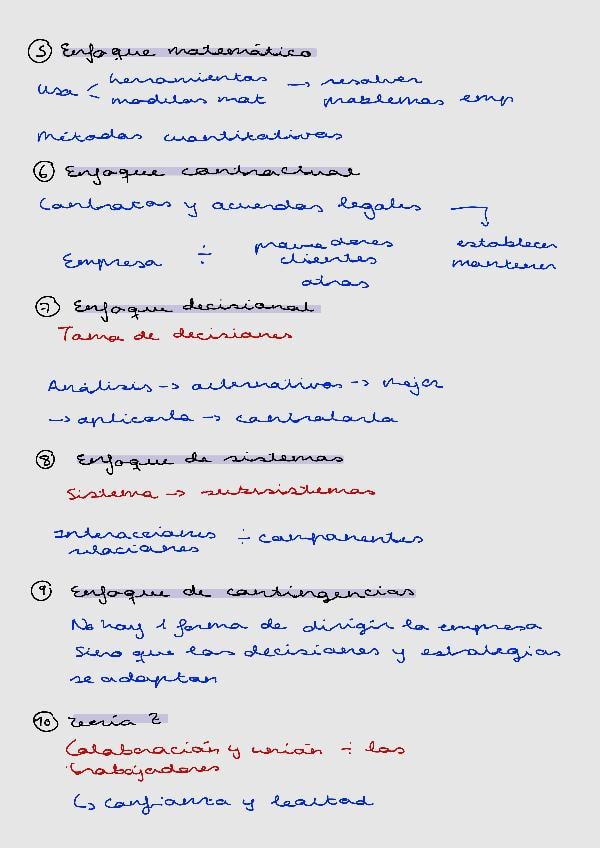 5 Enfoque matemático
usa < herramientas → resolver
modelos mat problemas emp
Métodos cuantitativos
6 Enfoque contractual
Contratos y acuerdos legales
establecer
mantener
Empresa ÷ proveedores
clientes
otros
7 Enfoque decisional
Toma de decisiones
Análisis → alternativas → mejor
→ aplicarla → controlarla
8 Enfoque de sistemas
Sistema → subsistemas
Interacciones ÷ componentes
relaciones
9 Enfoque de contingencias
No hay 1 forma de dirigir la empresa
Sino que las decisiones y estrategias
se adaptan
10 Teoría Z
Colaboración y unión ÷ los
trabajadores
↳ confianza y lealtad